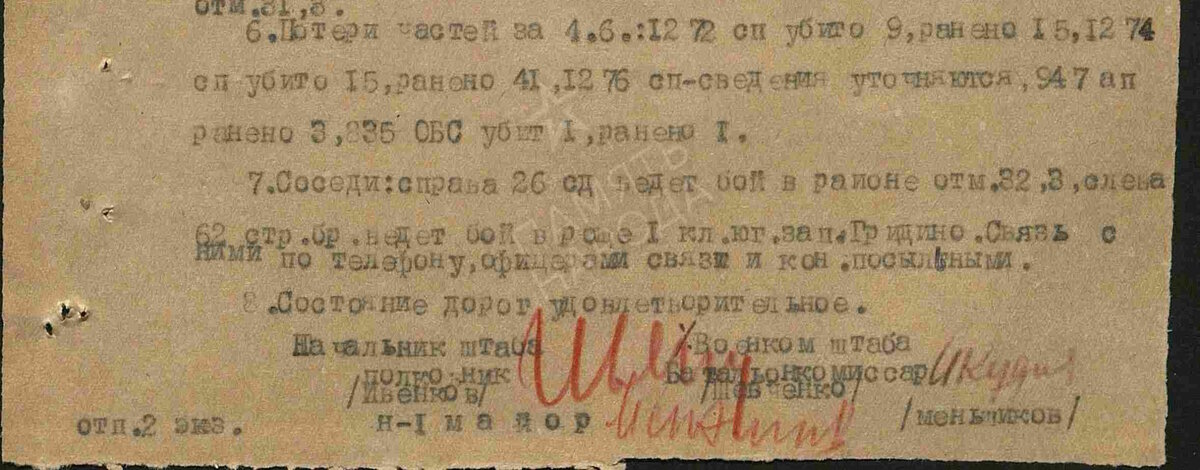 отм.31,3.
6.Потери частей за 4.6.:1272 сп убито 9,ранено I5,I274
сп убито I5,ранено 4I,I276 сп-сведения уточняются,947 ап
ранено 3,835 ОБС убит I,ранено I.
7.Соседи:справа 26 сд ведет бой в районе отм.32,3,слева
62 стр.бр.ведет бой в роще I кл.юг.зап.Гридино.Связь с
ними по телефону,офицерами связи и кон.посыльными.
8.Состояние дорог удовлетворительное.
Начальник штаба Военком штаба
полковник Батальонкомиссар
/Ивенков/ /Шевченко/
отп.2 экз. н-I майор /меньчиков/
ПАМЯТЬ НАРОДА